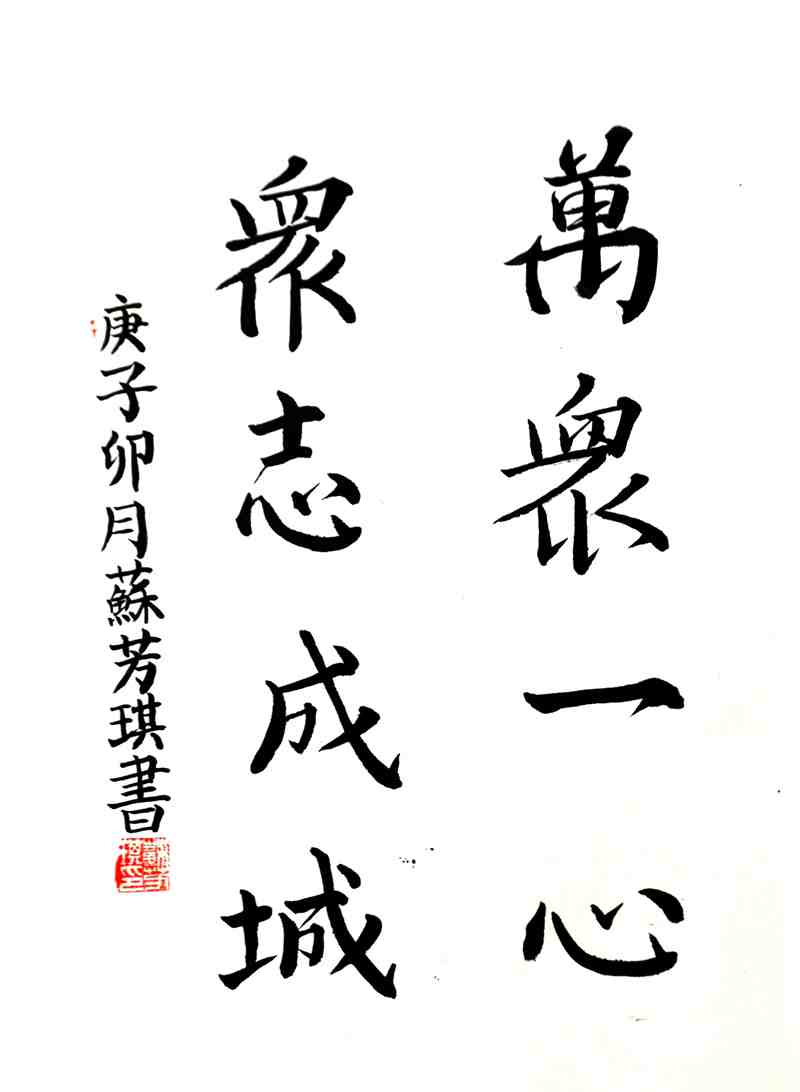 萬衆一心
衆志成城
庚子卯月蘇芳琪書